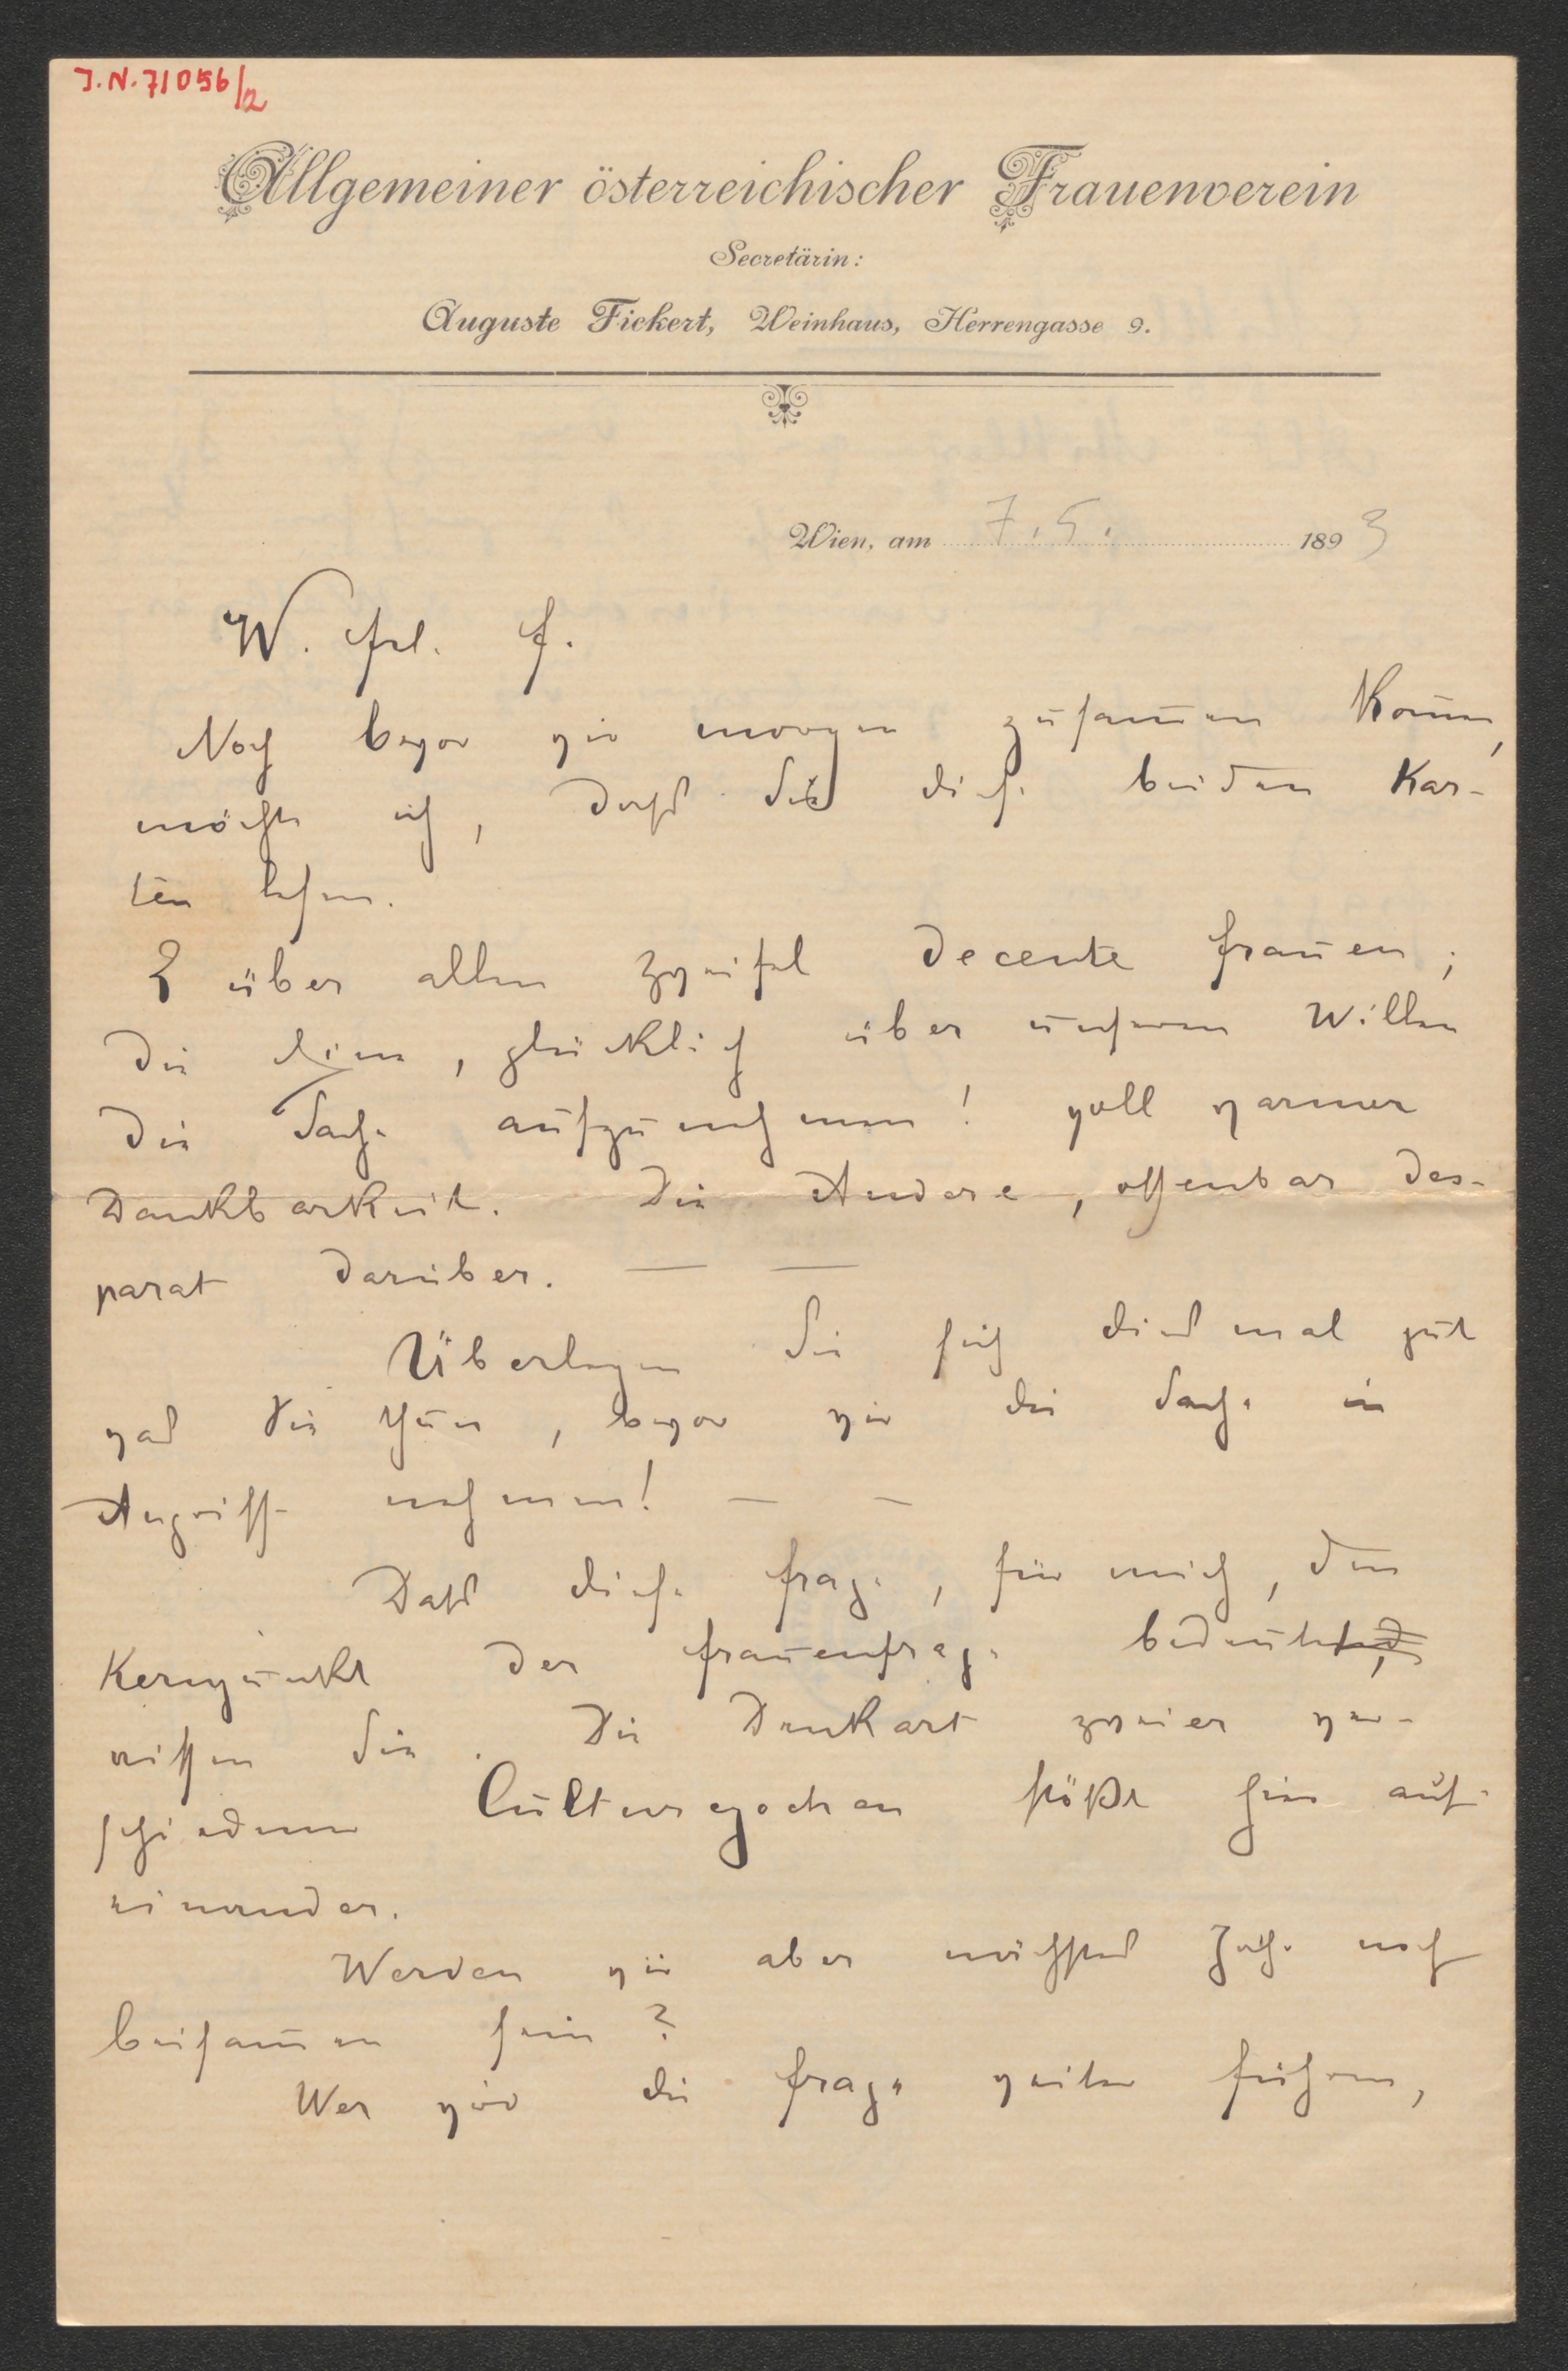 J.N. 71056/2
Allgemeiner österreichischer Frauenverein
Secretärin:
Auguste Fickert, Weinhaus, Herrengasse 9.
Wien, am 7.5. 1893
W. Frl. F.
Noch bevor wir morgen zusam̄en kom̄en,
möchte ich, dass Sie diese beiden Kar-
ten lesen.
2 über allen Zweifel decente Frauen;
die Eine, glücklich über unseren Willen
die Sache aufzunehmen! voll warmer
Dankbarkeit. Die Andere, offenbar des-
parat darüber. — —
Überlegen Sie sich diesmal gut
was Sie thun, bevor wir die Sache in
Angriff nehmen! — —
Dass diese Frage, für mich, den
Kernpunkt der Frauenfrage bedeutet,
wissen Sie. Die Denkart zweier ver-
schiedenen Culturepochen stößt hier auf-
einander.
Werden wir aber nächstes Jahr noch
beisam̄en sein?
Wer wird die Frage weiter führen,